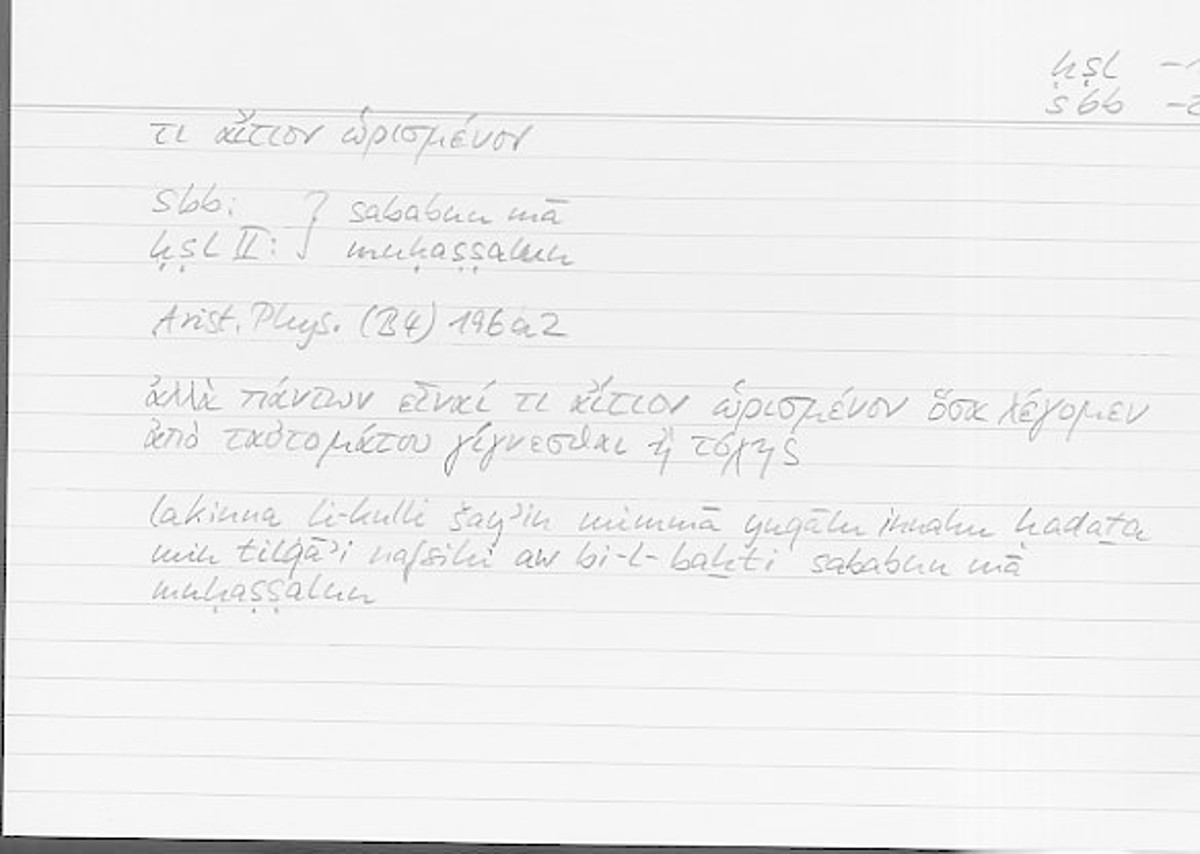 ḥṣl
sbb
τι αἴτιον ὡρισμένον
sbb: } sababun mā
ḥṣl II: muḥaṣṣalun
Arist. Phys. (B4) 196a2
ἀλλὰ πάντων εἶναί τι αἴτιον ὡρισμένον ὅσα λέγομεν
ἀπὸ ταὐτομάτου γίγνεσθαι ἢ τύχης
lakinna li-kulli šayʾin mimmā yuqālu innahu ḥadaṯa
min tilqāʾi nafsihi aw bi-l-baḫti sababun mā
muḥaṣṣalun